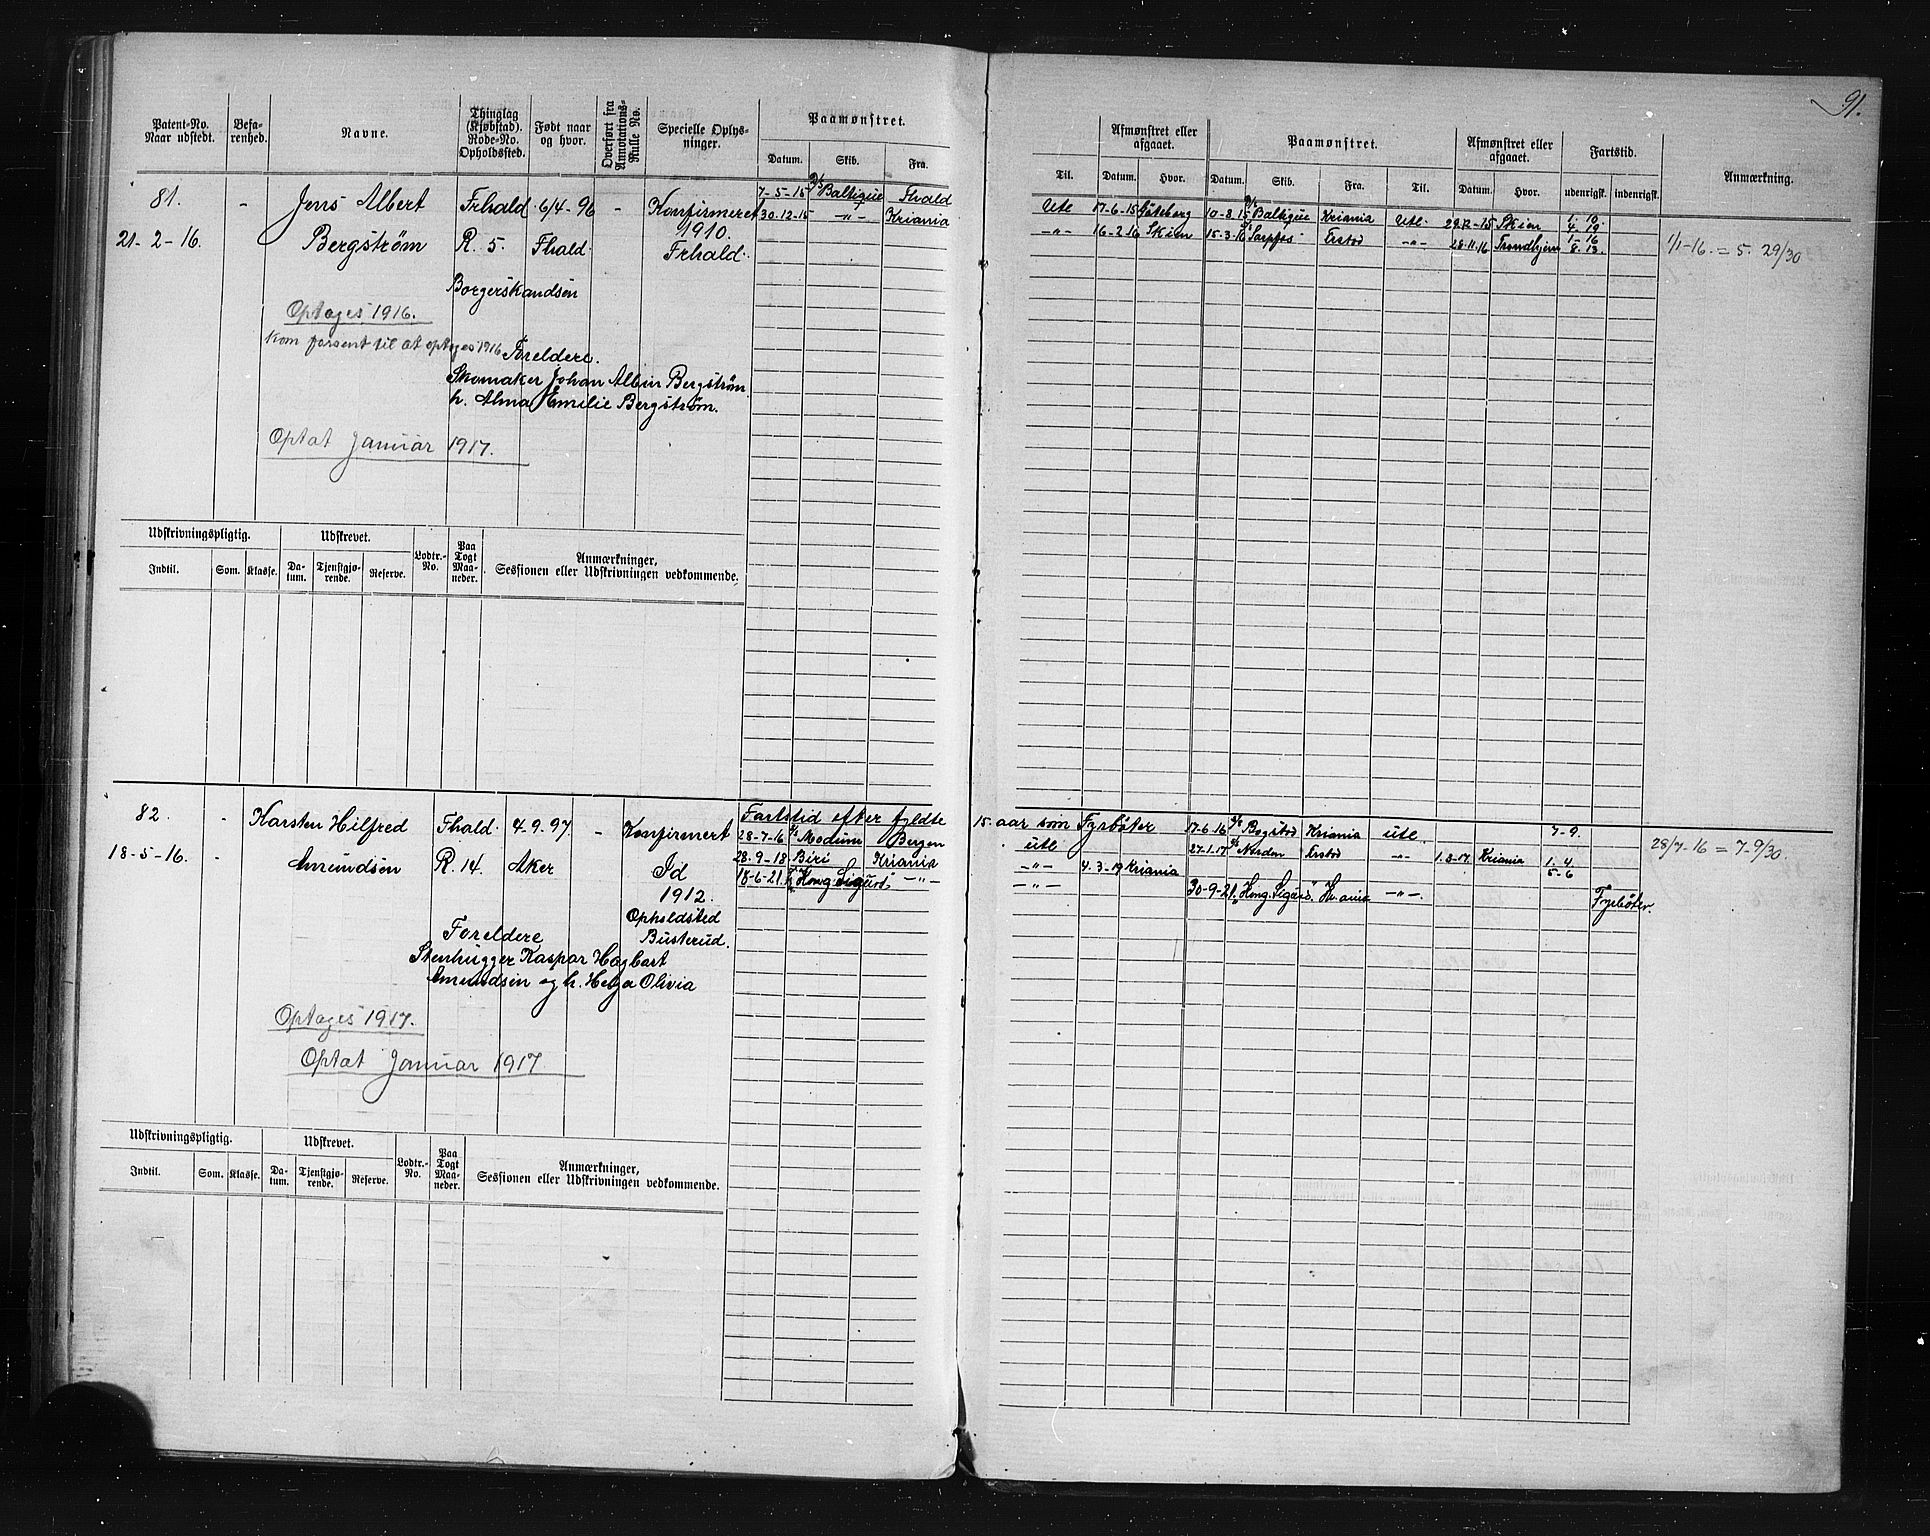 91.
Patent-No. Naar udstedt.
Befa-renhed.
Navne.
Thinglag (Kjøbstad). Rode-No. Opholdssted.
Født naar og hvor.
Overført fra Annotations-Rulle No.
Specielle Oplys-ninger.
Paamønstret.
Datum. Skib. Fra.
Til.
Afmønstret eller afgaaet.
Datum. Hvor.
Paamønstret.
Datum. Skib. Fra. Til.
Afmønstret eller afgaaet.
Datum. Hvor.
Fartstid.
udenrigsk. indenrigsk.
Anmærkning.
81. - Jens Albert Frhald. 6/4-96 - Konfirmeret 7-5-15 D/S Baltique Fhald Utl. 17-6-15 Göteborg 10-8-15 D/S Baltique Kriania Utl. 29.12-15 Skien 1-10 4-19
21-2-16. Bergström R. 5. Fhald. 1910. Frhald. 30.12-15 -"- Kriania -"- 16-2-16 Skien 15-3-16 Erstad -"- 28.11.16 Trondhjem 1-16 8-13.
1/1-16. = 5. 29/30
Borgerskandsen
Optages 1916.
Kom forsent til at optages 1916
Foreldere.
Skomaker Johan Albin Bergström
h. Alma Emilie Bergström.
Optat Januar 1917.
Udskrivningspligtig. Udskrevet. Lodtr.-No. Paa Togt Maa-neder. Anmærkninger, Sessionen eller Udskrivningen vedkommende.
Indtil. Som. Klasse. Da-tum. Tjenstgjø-rende. Reserve.
82. - Karsten Hilfred Fhald. 4-9.97. - Konfirmert Fartstid efter fyldte 15. aar som Fyrbøter 17-6-16 D/S Bogstad Kriania utl. 7-9.
18-5-16. - Amundsen R. 14. Aker Id 1912. 28-7-16 D/S Modum Bergen utl 27-1.17 D/S Norden Erstad -"- 1.3-17 Kriania 1-4
28/7-16 = 7-9/30.
28.9-18 Biri Kriania -"- 4.3-19 Kriania 5-6
18-6-21. "Kong Sigurd" -"- -"- 30-9-21. "Kong Sigurd" Kr.ania -"-. Fyrbøter.
Opholdsted
Busterud.
Foreldere
Stenhugger Kaspar Hagbart
Amundsen og h. Helga Olivia
Optages 1917.
Optat Januar 1917
Udskrivningspligtig. Udskrevet. Lodtr.-No. Paa Togt Maa-neder. Anmærkninger, Sessionen eller Udskrivningen vedkommende.
Indtil. Som. Klasse. Da-tum. Tjenstgjø-rende. Reserve.